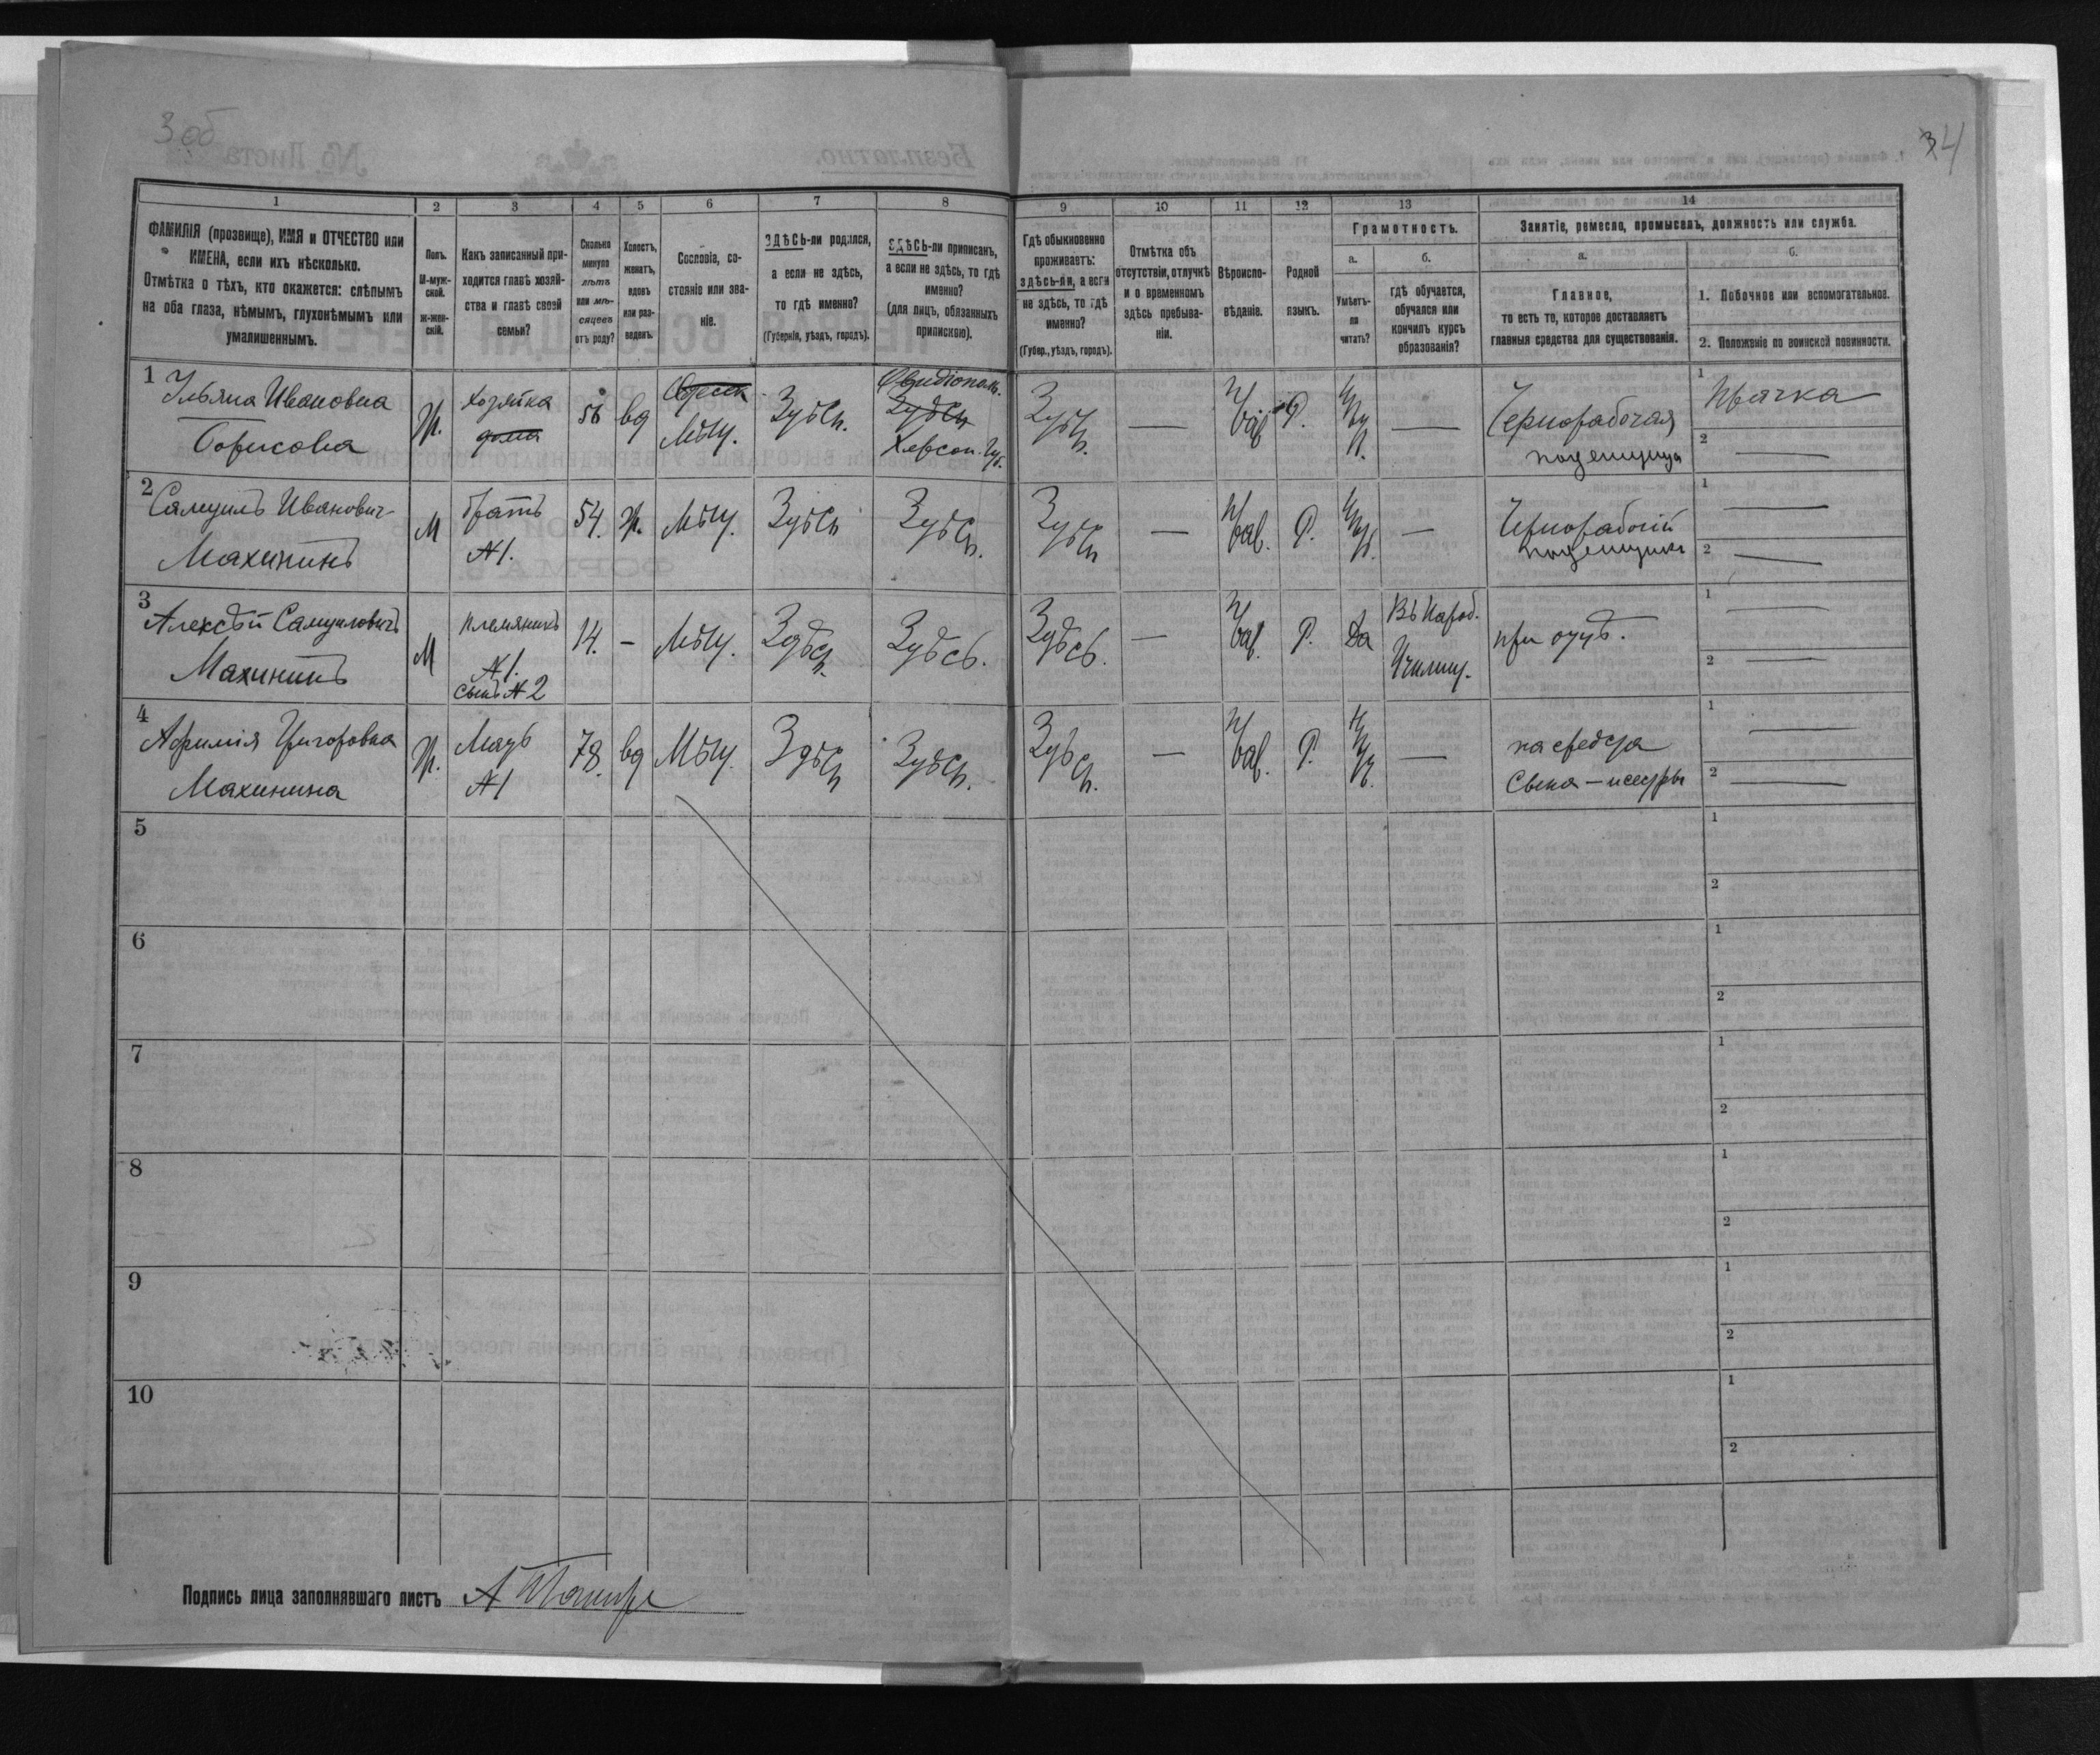 3 об
34
1 2 3 4 5 6 7 8 9 10 11 12 13 14
ФАМИЛІЯ (прозвище), ИМЯ и ОТЧЕСТВО или
ИМЕНА, если ихъ нѣсколько.
Отмѣтка о тѣхъ, кто окажется: слѣпымъ
на оба глаза, нѣмымъ, глухонѣмымъ или
умалишеннымъ.
Полъ.
М-муж-
ской.
ж-жен-
скій.
Какъ записанный при-
ходится главѣ хозяй-
ства и главѣ своей
семьи?
Сколько
минуло
лѣтъ
или мѣ-
сяцевъ
отъ роду?
Холостъ,
женатъ,
вдовъ
или раз-
веденъ.
Сословіе, со-
стояніе или зва-
ніе.
ЗДѢСЬ-ли родился,
а если не здѣсь,
то гдѣ именно?
(Губернія, уѣздъ, городъ).
ЗДѢСЬ-ли приписанъ,
а если не здѣсь, то гдѣ
именно?
(для лицъ, обязанныхъ
припискою).
Гдѣ обыкновенно
проживаетъ:
здѣсь-ли, а если
не здѣсь, то гдѣ
именно?
(Губер., уѣздъ, городъ).
Отмѣтка объ
отсутствіи, отлучкѣ
и о временномъ
здѣсь пребыва-
ніи.
Вѣроиспо-
вѣданіе.
Родной
языкъ.
Грамотность.
а.
Умѣетъ-
ли
читать?
б.
гдѣ обучается,
обучался или
кончилъ курсъ
образованія?
Занятіе, ремесло, промыселъ, должность или служба.
а.
Главное,
то есть то, которое доставляетъ
главныя средства для существованія.
б.
1. Побочное или вспомогательное.
2. Положеніе по воинской повинности.
1
Ульяна Ивановна
Борисова
Ж.
Хозяйка
56
вд
Мѣщ.
Здѣсь.
Овидіополь.
Здѣсь
Херсон. Губ.
Здѣсь.
—
Прав.
Р.
—
Чернорабочая
поденщица
1 Прачка
2 —
2
Самуилъ Ивановичъ
Махининъ
М
братъ
№1.
54.
ж.
Мѣщ.
Здѣсь
Здѣсь.
Здѣсь
—
Прав.
Р.
—
Чернорабочій
поденщикъ
1 —
2 —
3
Алексѣй Самуиловичъ
Махининъ
М
племяникъ
№1.
сынъ №2
14.
-
Мѣщ.
Здѣсь.
Здѣсь.
Здѣсь.
—
Прав.
Р.
Да
Въ Народ.
Училищ.
при отцѣ.
1 —
2 —
4
Афимія Григоровна
Махинина
Ж.
Мать
№1
78.
вд
Мѣщ.
Здѣсь
Здѣсь.
Здѣсь.
—
Прав.
Р.
—
на средства
Сына –
1 —
2 —
5
1
2
6
1
2
7
1
2
8
1
2
9
1
2
10
1
2
Подпись лица заполнявшаго листъ